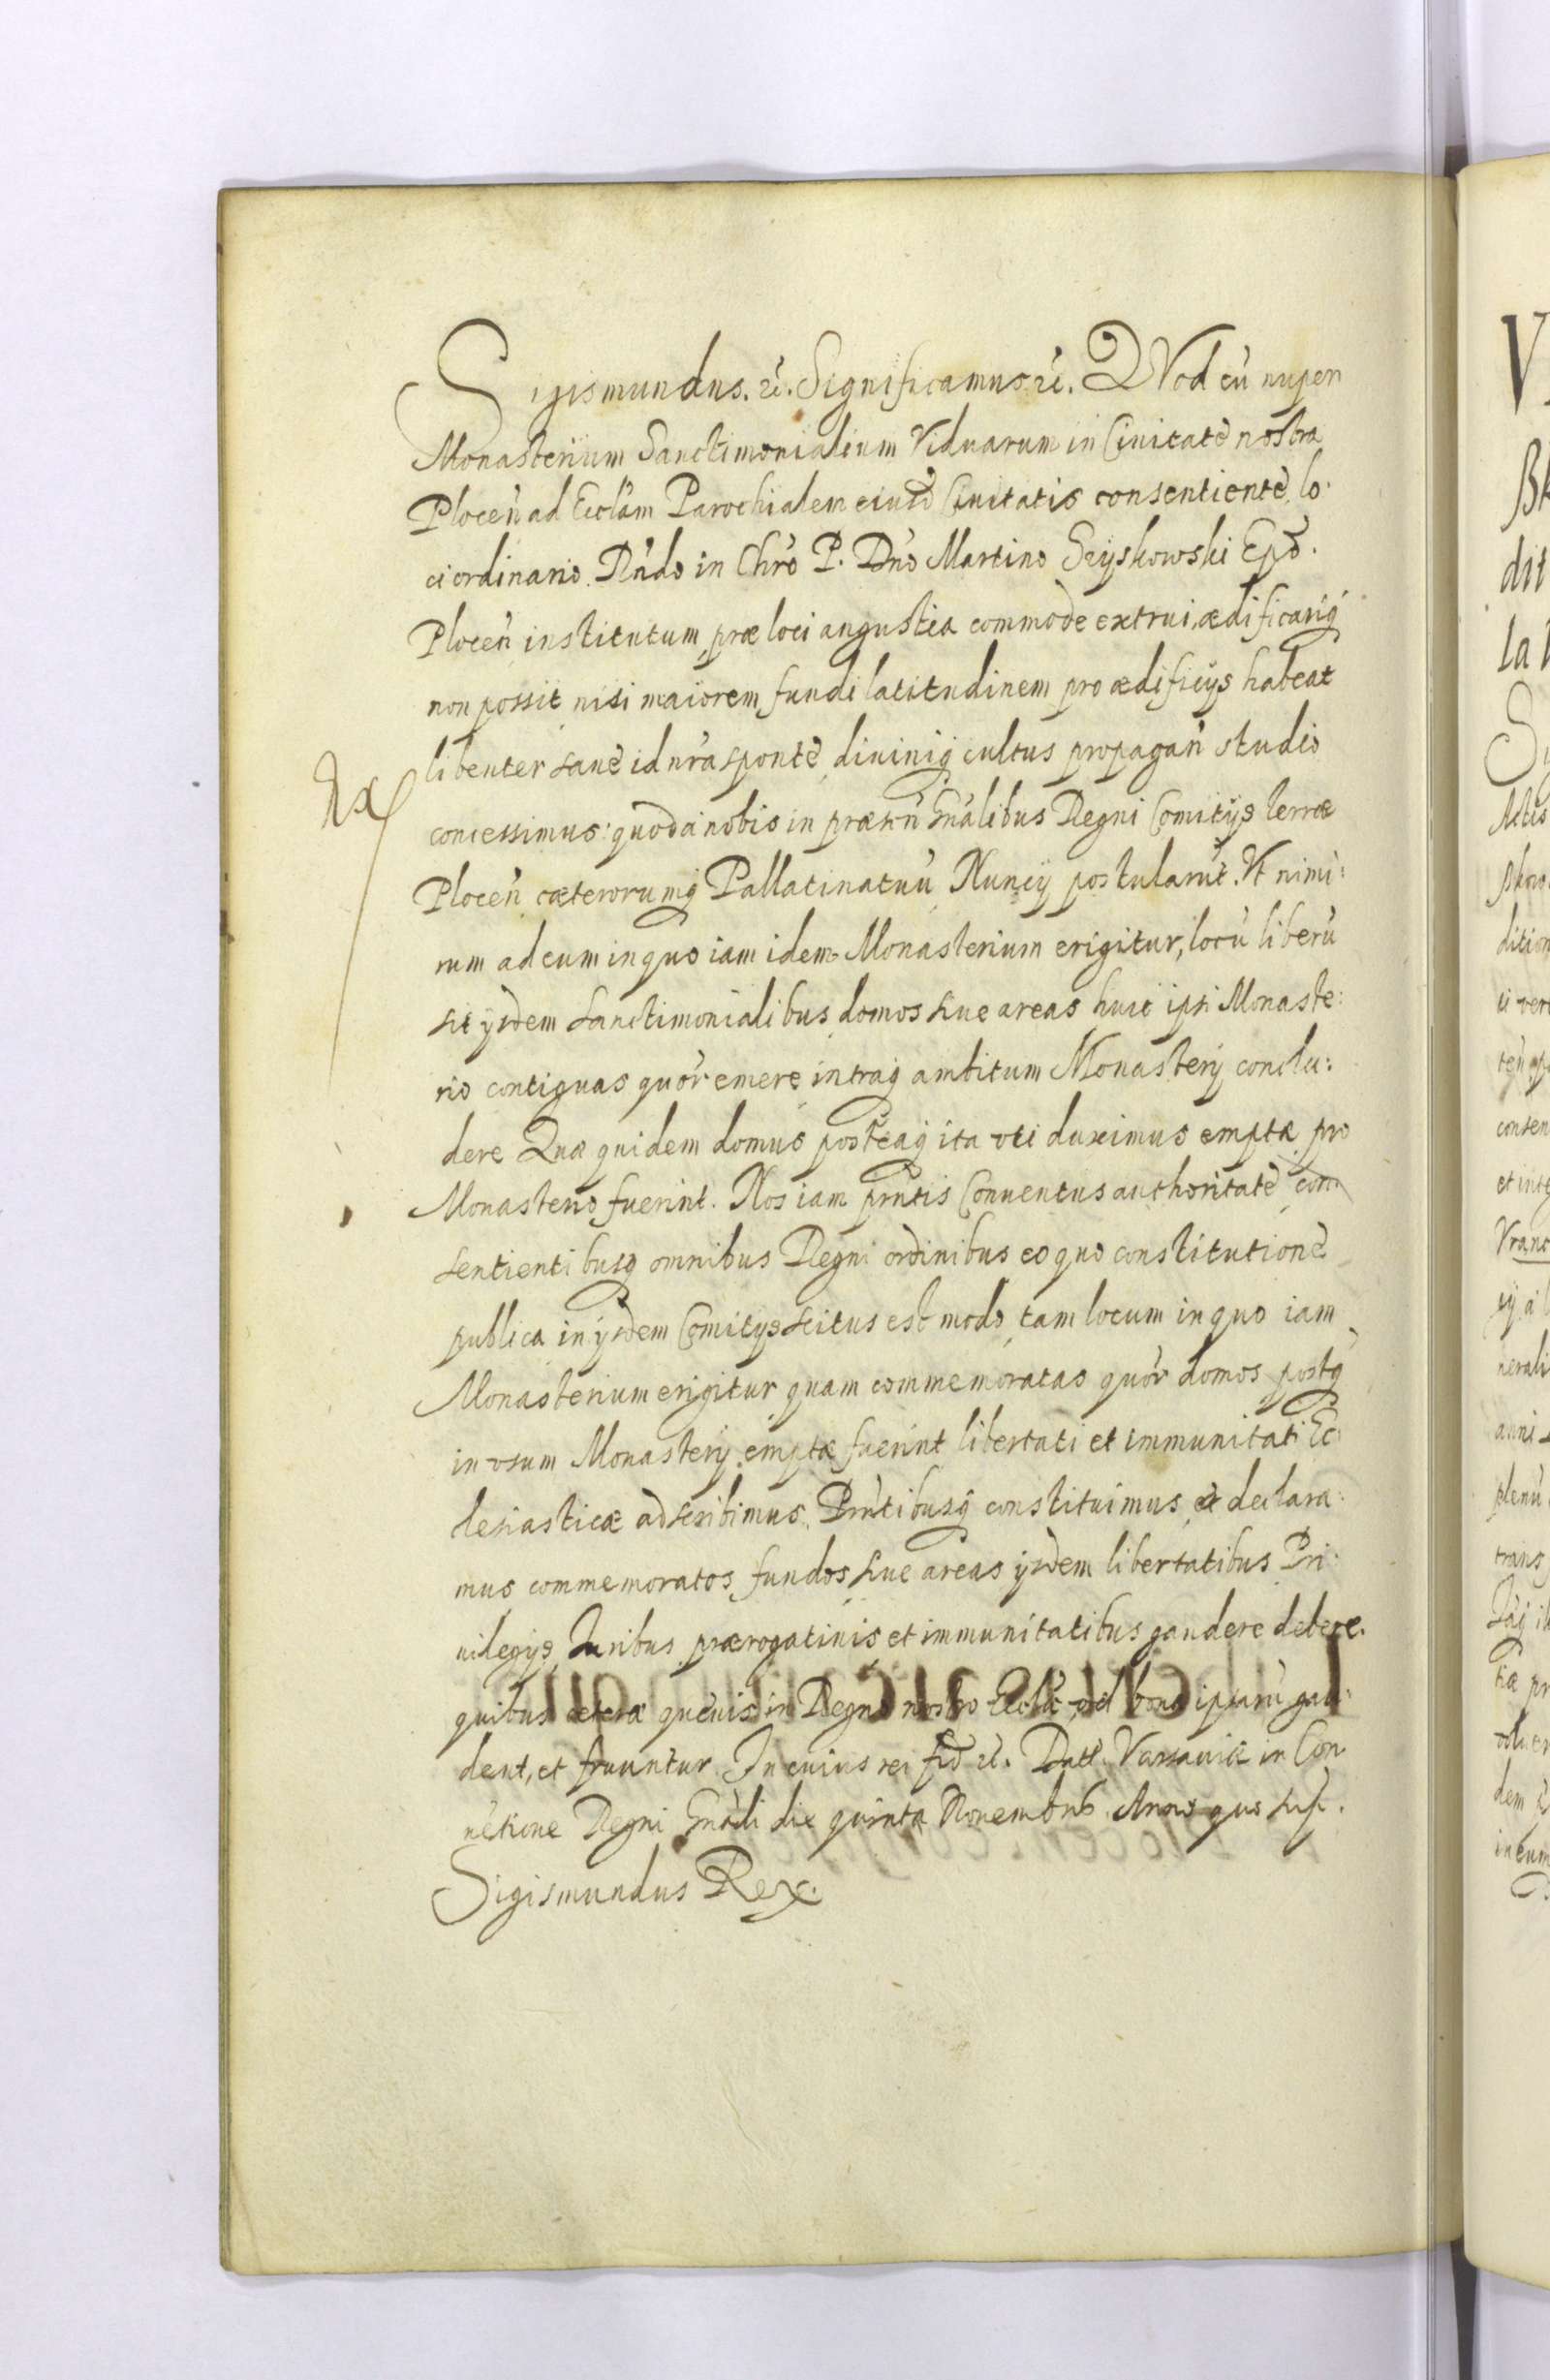 Sigismundus. &c. Significamus &c. QVod cū nuper
Monasterium Sanctimonialium Viduarum in Ciuitate nostra
Plocen̄ ad Eccłam Parochialem eiusd Ciuitatis consentiente lo:
ci ordinario Rńdo in Chrō P. Dńo Martino Szyskowski Epō.
Plocen̄ institutum, præ loci angustia commode extrui, ædificariq́
non possit, nisi maiorem fundi latitudinem pro ædificijs habeat
libenter sane id nrā sponte, diuiniq́ cultus propagań studio
Ex
concessimus: quod a nobis in præsń Gnālibus Regni Comitijs terræ
Plocen̄ cæterorumq́ Pallatinatuū Nuncij postularūt. Vt nimi:
rum ad eum in quo iam idem Monasterium erigitur, locū liberū
sit ijsdem Sanctimonialibus domos siue areas huic ipsi Monaste:
rio contiguas quōr emere, intraq́ ambitum Monasterij conclu:
dere Quæ quidem domus posteaq́ ita vti duximus emptæ pro
Monasterio fuerint. Nos iam prntis Conuentus authoritate con
sentientibusq́ omnibus Regni ordinibus eo quo constitutione
publica in ijsdem Comitijs scitus est modo, tam locum in quo iam
Monasterium erigitur quam commemoratas quōr domos postq́
in vsum Monasterij emptæ fuerint libertati et immunitati Ec:
clesiasticæ adscribimus. Prńtibusq́ constituimus et declara:
mus commemoratos fundos siue areas ijsdem libertatibus Pri:
uilegijs, Iuribus, prærogatiuis et immunitatibus gaudere debere.
quibus ceteræ queuis in Regno nostro Eccłæ vel bona ipsarū gau:
dent, et fruuntur In cuius rei fid &c. Datt. Varsauiæ in Con
uētione Regni Gnāli die quinta Nouembris Anno quo sup̄.
Sigismundus Rex.